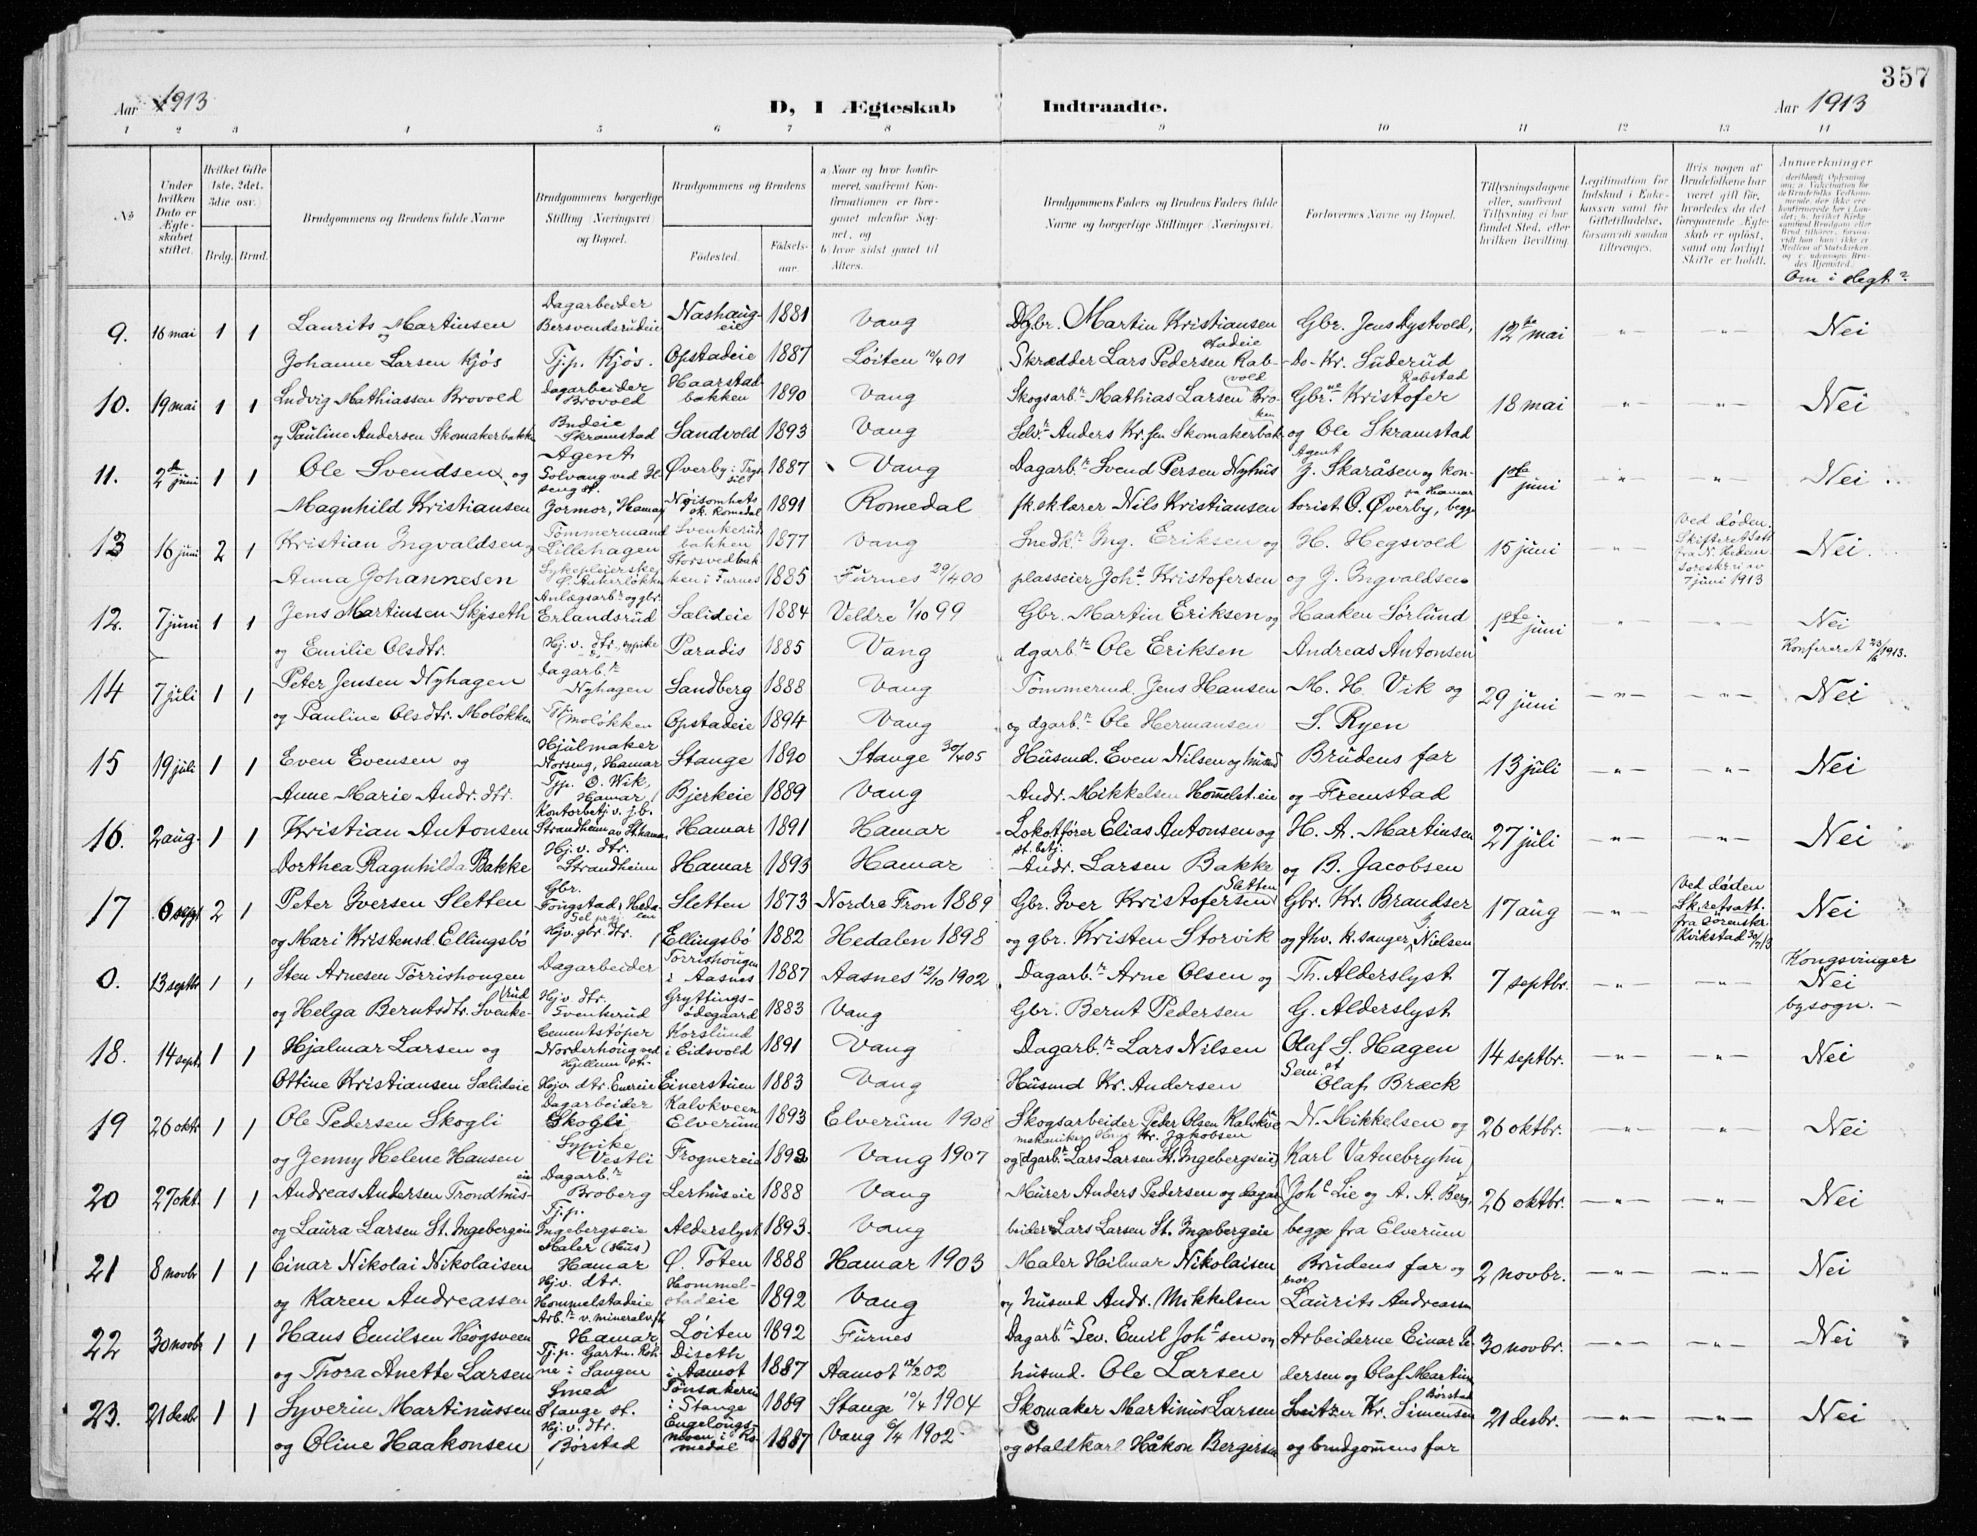 357
Aar 1913
D, I Ægteskab Indtraadte.
Aar 1913
1 2 3 4 5 6 7 8 9 10 11 12 13 14
No
Under hvilken Dato er Ægteskabet stiftet.
Hvilket Gifte 1ste, 2det, 3die osv.
Brdg. Brud.
Brudgommens og Brudens fulde Navne
Brudgommens borgerlige Stilling (Næringsvei) og Bopæl.
Brudgommens og Brudens
Fødested. Fødselsaar.
a) Naar og hvor konfirmeret, saafremt Konfirmationen er foregaaet udenfor Sognet, og
b) hvor sidst gaaet til Alters.
Brudgommens Faders og Brudens Faders fulde Navne og borgerlige Stillinger (Næringsvei).
Forlovernes Navne og Bopæl.
Tillysningsdagene eller, saafremt Tillysning ei har fundet Sted, efter hvilken Bevilling.
Legitimation for Indskud i Enkekassen samt for Giftetilladelse, forsaavidt saadan tiltrænges.
Hvis nogen af Brudefolkene har været gift før, hvorledes da det foregaaende Ægteskab er opløst, samt om lovligt Skifte er holdt.
Anmerkninger
Om i slegt?
9. 16 mai 1 1 Laurits Martinsen og Dagarbeider Bersvendsrudeie Nashaugeie 1881 Vang Dgbr. Martin Kristiansen Gbr. Jens Nystvold, 12te mai -"- -"- Nei
Johanne Larsen Kjøs Tj.p. Kjøs. Opstadeie 1887 Løiten 10/4 01 Skrædder Lars Pedersen Rabstadeie -Do- Kr. Suderud
10. 19 mai 1 1 Ludvig Mathiassen Brovold Dagarbeider Brovold Haarstadbakken 1890 Vang Skogsarbr. Mathias Larsen Brovold Gbrne Kristofer Rabstad 18 mai -"- -"- Nei
og Pauline Andersen Skomakerbakken Budeie Skramstad Sandvold 1893 Vang Selv. Anders Kr.sen Skomakerbakken og Ole Skramstad
11. 2de juni 1 1 Ole Svendsen og Agent Solvang ved Hl seng st. Øverby i Trysil 1887 Vang Dagarbr. Svend Persen Nyhus Agent J. Skaråsen og kon- 1ste juni -"- -"- Nei
Magnhild Kristiansen Jormor, Hamar Nøisomhets sk. Romedal 1891 Romedal fk.sk.lærer Nils Kristiansen torist O. Øverby, begge paa Hamar
13 16 juni 2 1 Kristian Ingvaldsen og Tømmermand Lillehagen Svenkerudbakken 1877 Vang Snedkr. Ing. Eriksen og H. Hegsvold 15 juni -"- Ved døden. Skifteretsatt. fra N. Hedem. sorenskriver 7 juni 1913 Nei
Anna Johannesen Sykepleierske Ø. Ankerløkken Storsvedbakken i Furnes 1885 Furnes 29/4 00 plasseier Johs. Kristofersen og J. Ingvaldsen
12. 7 juni 1 1 Jens Martinsen Skjeseth Anlægsarbr. og gbr. Erlandsrud Sælideie 1884 Veldre 1/10 99 Gbr. Martin Eriksen og Haaken Sørlund 1ste juni -"- -"- Nei
og Emilie Olsdtr. Hj.v. dtr., sypike Paradis 1885 Vang dgarbr. Ole Eriksen Andreas Antonsen Konfereret 23/6 1913.
14 7 juli 1 1 Peter Jensen Nyhagen Dagarbr. Nyhagen Sandberg 1888 Vang Tømmermd. Jens Hansen M. H. Vik og 29 juni -"- -"- Nei
og Pauline Olsdtr. Moløkken Tj. Moløkken Opstadeie 1894 Vang og dgarbr. Ole Hermansen S. Ryen
15 19 juli 1 1 Even Evensen og Hjulmaker Norseng, Hamar Stange 1890 Stange 30/4 05 Husmd. Even Nilsen og husmd Brudens far 13 juli -"- -"- Nei
Anne Marie Andr. dtr. Tjp. O. Wik, Hamar Bjerkeie 1889 Vang Andr. Mikkelsen Hommelst.eie og Fremstad
16. 2 aug. 1 1 Kristian Antonsen Kontorbetj. v. j.b. Strandheim av St. hamar Hamar 1891 Hamar Lokotfører Elias Antonsen og H. A. Martinsen 27 juli -"- -"- Nei
Dorthea Ragnhilda Bakke Hj. v. dtr. Strandheim Hamar 1893 Hamar st.betj. Andr. Larsen Bakke og B. Jacobsen
17 6 sept 2 1 Peter Iversen Sletten Gbr. Tongstad, Hedalen Sletten 1873 Nordre Fron 1889 Gbr. Iver Kristofersen Sletten Gbr. Kr. Brandser 17 aug -"- Ved døden Sk.retsatt. fra sørenskr. Kvikstad 30/7 13 Nei
og Mari Kristensd. Ellingsbø Hjv. gbr. dtr. Ellingsbø 1882 Hedalen 1898 og gbr. Kristen Storvik og fhv. k.sanger J. Nielsen
0. 13 septbr 1 1 Sten Arnesen Tørrishougen Dagarbeider Tørrishougen i Aasnes 1887 Aasnes 12/10 1902 Dagarbr. Arne Olsen og Th. Alderslyst 7 septbr. -"- -"- Kongsvinger Nei
og Helga Berntsdtr. Svenkerud Hjv. dtr. Svenkerud Gryttingsødegaard 1883 Vang Gbr. Bernt Pedersen G. Alderslyst bysogn.
18. 14 sept. 1 1 Hjalmar Larsen og Cementstøper Norderhoug ved Hjellum st. Korslund i Eidsvold 1891 Vang Dagarbr. Lars Nilsen Olaf S. Hagen 14 septbr. -"- -"- Nei
Ottine Kristiansen Sælideie Hjv. dtr. Enereie Einerstuen 1883 Vang Husmd Kr. Andersen Sem. st Olaf Bræck
19 26 oktr 1 1 Ole Pedersen Skogli Dagarbeider Skogli Kalvkveen Elverum 1893 Elverum 1908 Skogsarbeider Peder Olsen Kalvkve N. Mikkelsen og 26 oktbr. -"- -"- Nei
og Jenny Helene Hansen Sypike Vestli Frognereie 1892 Vang 1907 mekaniker Hans Kr. Jakobsen og (dgarbr. Lars Larsen St. Ingebergseie) Karl Vatnebryhn
20 27 okt. 1 1 Andreas Andersen Trondhuseie Dagarbr. Broberg Lerhuseie 1888 Vang Murer Anders Pedersen og dagar- Johs. Lie og A. A. Berg, 26 oktbr. -"- -"- Nei
og Laura Larsen St. Ingebergeie Tj.p. Ingebergseie Alderslyst 1893. Vang beider Lars Larsen St. Ingebergeie begge fra Elverum
21 8 novbr 1 1 Einar Nikolai Nikolaisen Maler (Hus) Hamar Ø. Toten 1888 Hamar 1903 Maler Hilmar Nikolaisen Brudens far og 2 novbr. -"- -"- Nei
og Karen Andreassen Hjv. dtr. Hommelstadeie Hommelstadeie 1892 Vang og husmd Andr. Mikkelsen bror Laurits Andreassen
22 30 novbr 1 1 Hans Emilsen Høgsveen Arbr. v. mineralvfk Hamar Løiten 1892 Furnes Dagarbr. Sev. Emil Johssen og Arbeiderne Einar Pe- 30 novbr. -"- -"- Nei
og Thora Anette Larsen Tj.p. Gartn. Røhne i Saugen Diseth i Aamot 1887 Aamot 12/2 02 husmd. Ole Larsen dersen og Olaf Martins
23. 21 desbr 1 1 Syverin Martinussen Smed Stange st. Tønsakereie i Stange 1889 Stange 10/4 1904 Skomaker Martinus Larsen Sveitser Kr. Simensen Børstad 21 desbr. -"- -"- Nei
og Oline Haakonsen Hj. v. dtr. Børstad Engelougsmoen i Romedal 1887 Vang 6/4 1902 og staldkarl Håkon Bergersen og brudgommens far